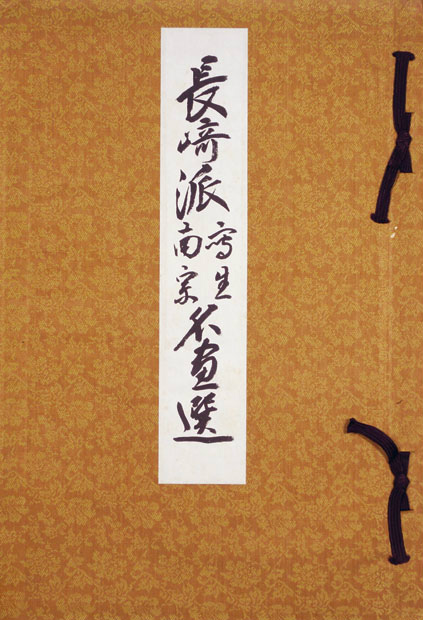 長崎派寫生南宗名画選